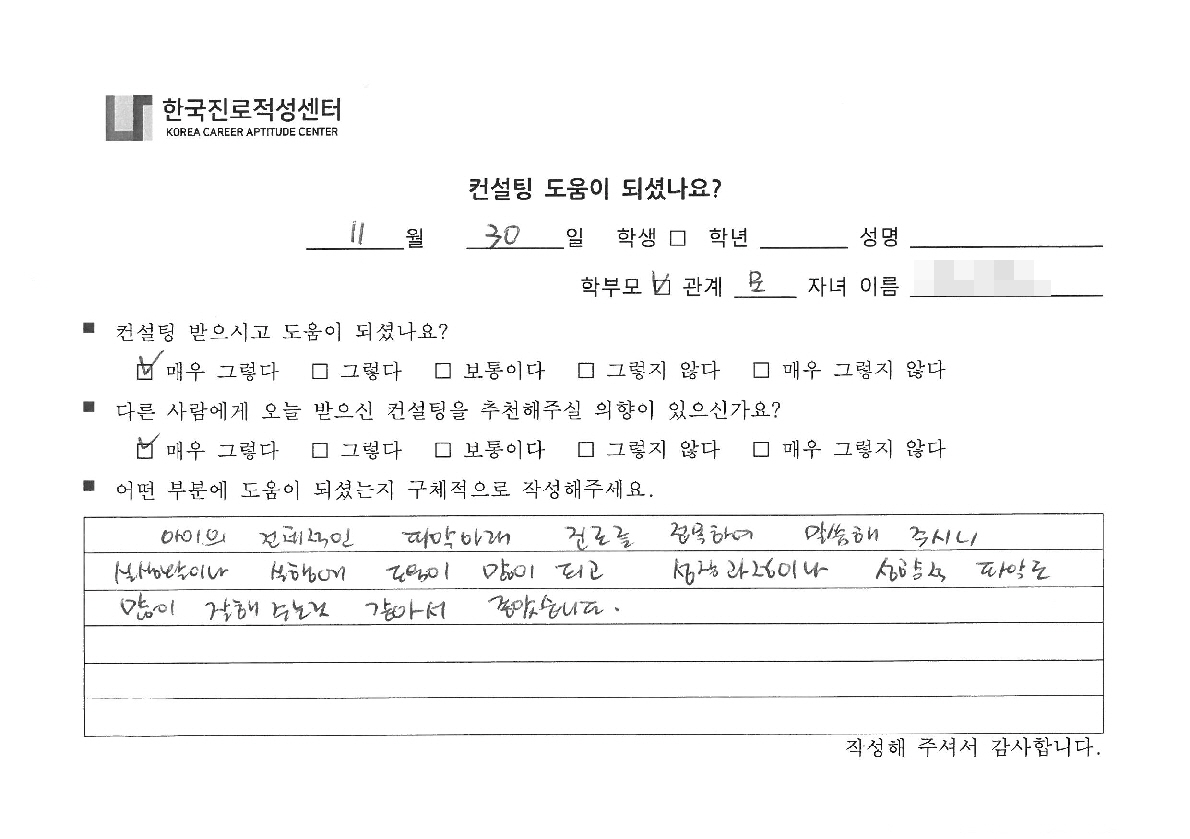 한국진로적성센터
KOREA CAREER APTITUDE CENTER
컨설팅 도움이 되셨나요?
11 월 30 일 학생 □ 학년 성명
학부모 ☑ 관계 모 자녀 이름
■ 컨설팅 받으시고 도움이 되셨나요?
☑ 매우 그렇다 □ 그렇다 □ 보통이다 □ 그렇지 않다 □ 매우 그렇지 않다
■ 다른 사람에게 오늘 받으신 컨설팅을 추천해주실 의향이 있으신가요?
☑ 매우 그렇다 □ 그렇다 □ 보통이다 □ 그렇지 않다 □ 매우 그렇지 않다
■ 어떤 부분에 도움이 되셨는지 구체적으로 작성해주세요.
아이의 전체적인 파악아래 진로를 접목하여 말씀해 주시니
도움이 많이 되고 성장과정이나 성향적 파악도
많이 잘해 주는것 같아서 좋았습니다.
작성해 주셔서 감사합니다.